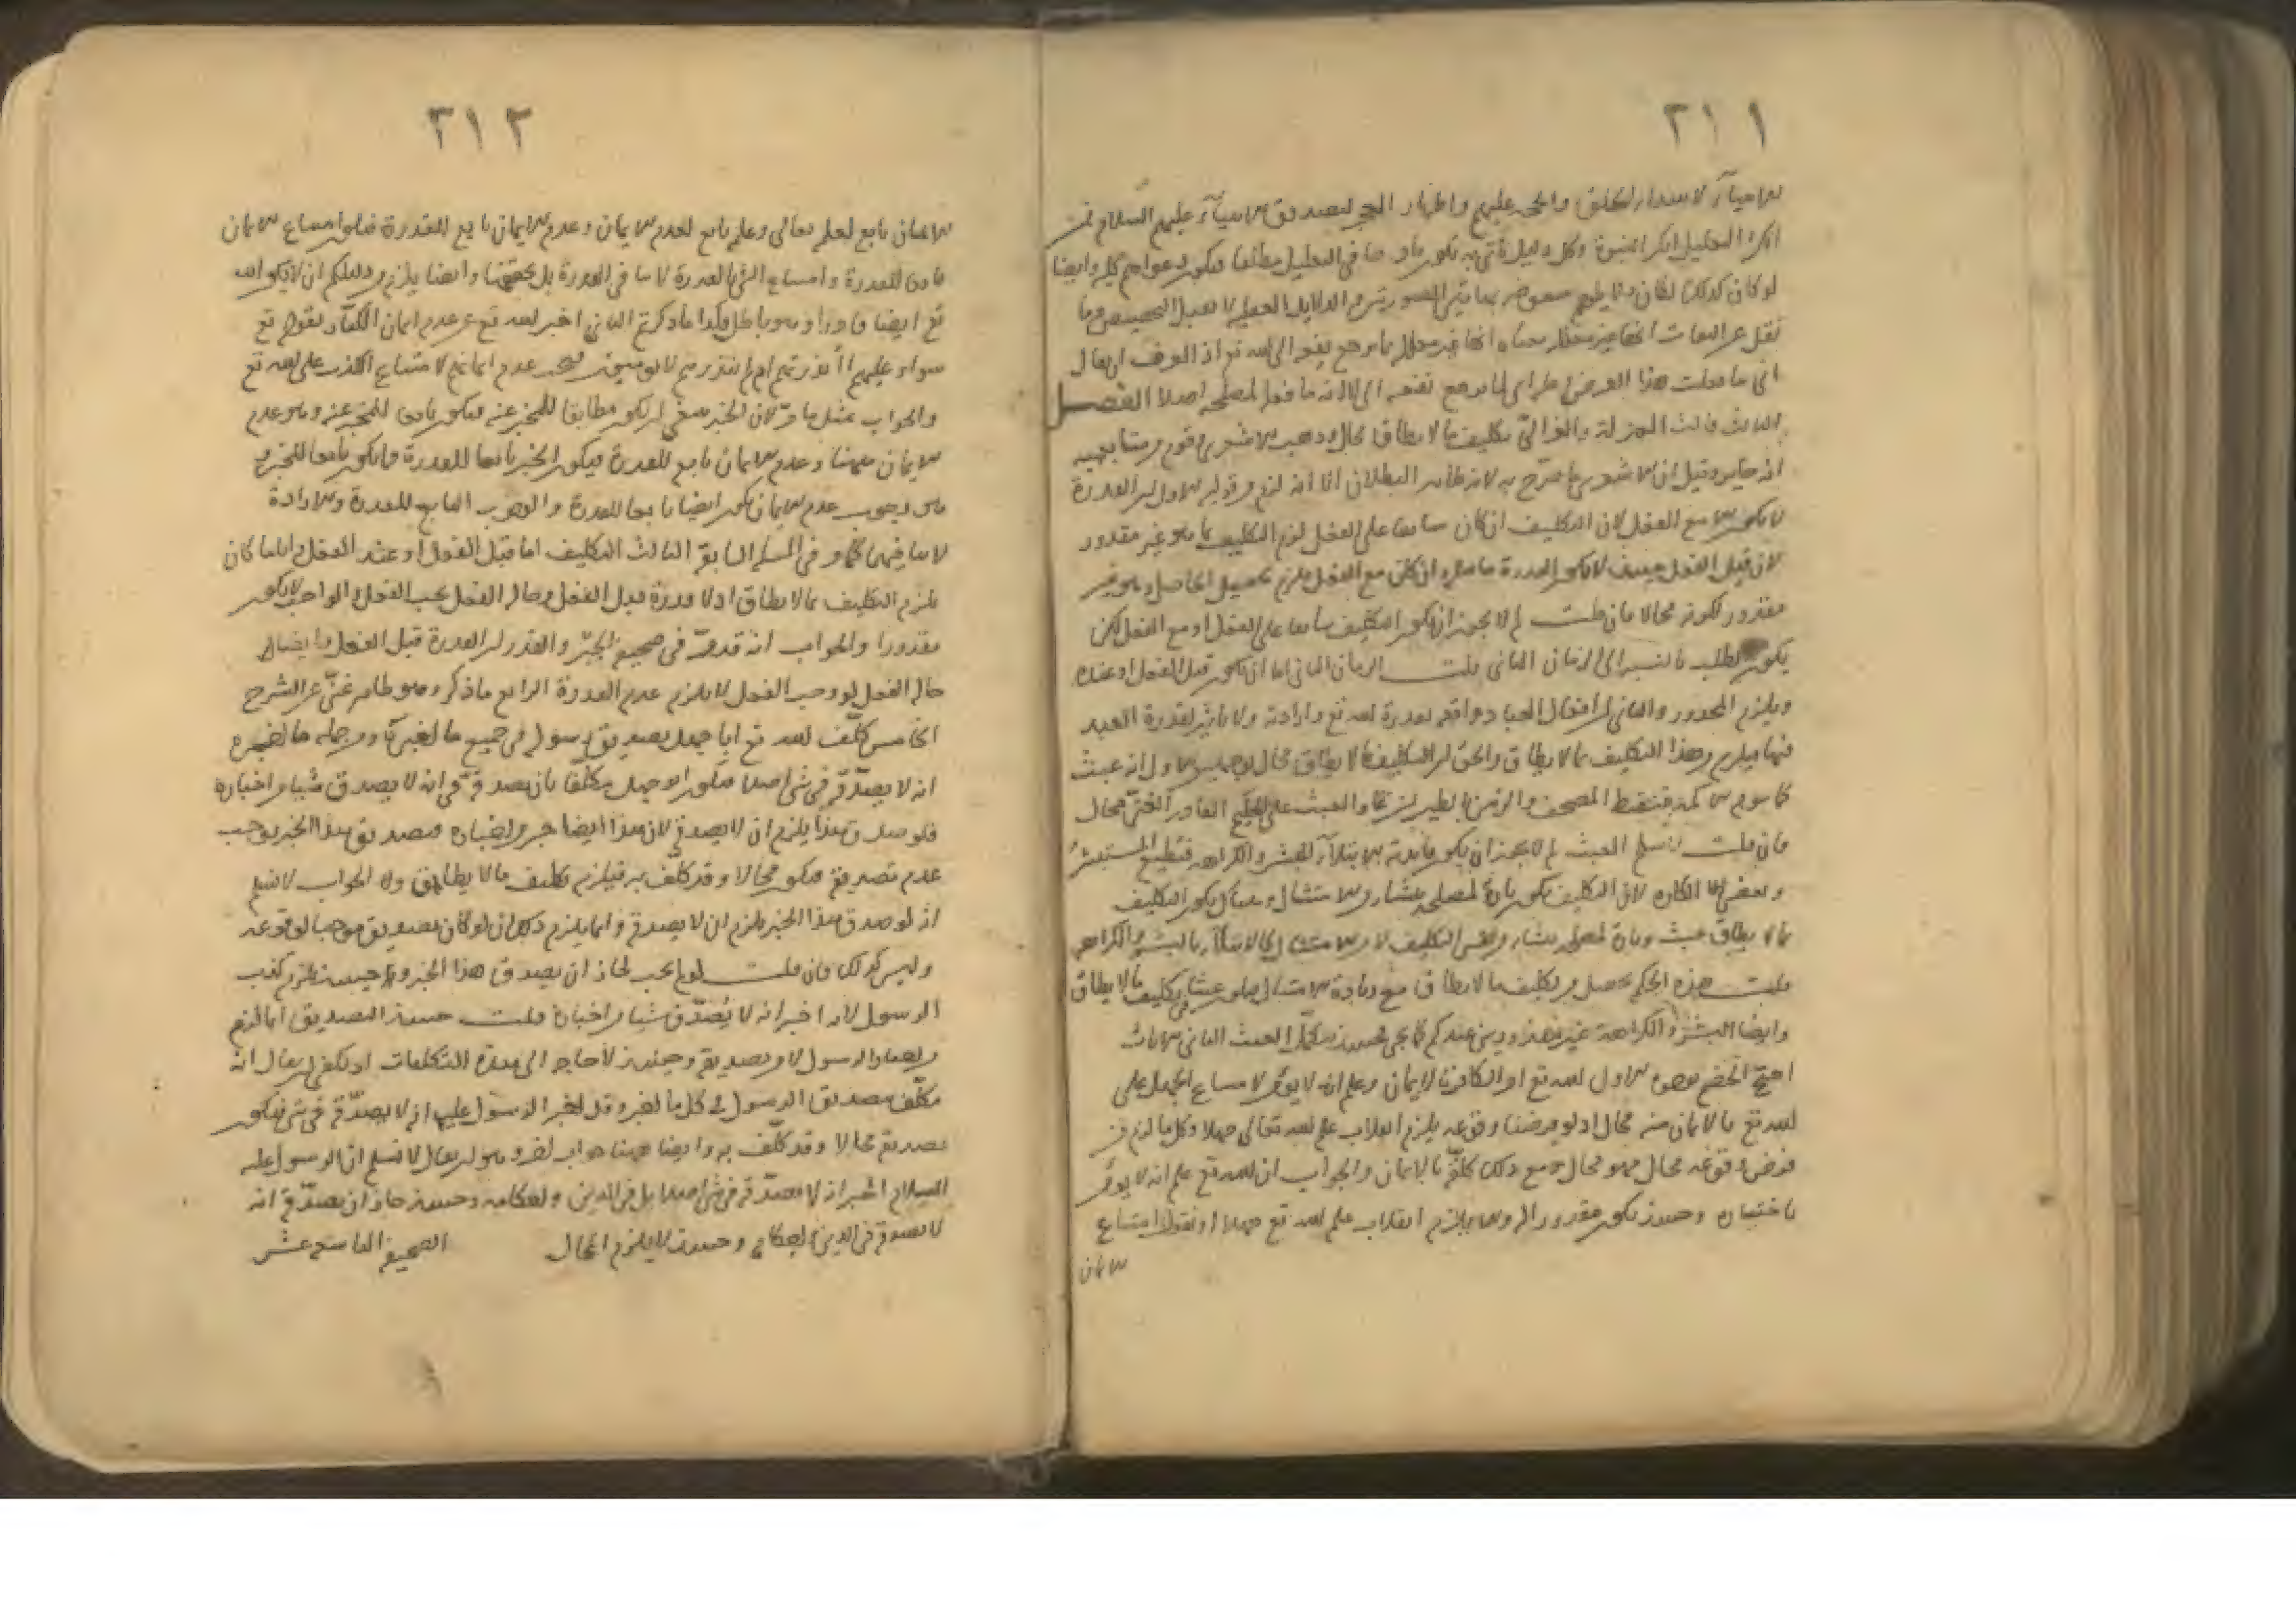 ٣١١
الانبياء لاهتداء الخلق واظهار المعجز لتصديق الانبياء عليهم السلام فمن
انكر التعليل انكر النبوة وكل دليل يأتي به يكون في التعليل مطلقا فيكون دعواهم كلية وايضا
لو كان كذلك لكان الدلائل العقلية لا تقبل التخصيص وما
نقل عن معناه انها غير معللة بما يرجع نفعه الى الله تع اذ العرف ان يقال
اني ما فعلت هذا الغرض لي اي لما يرجع نفعه الي لا انه ما فعل لمصلحة اصلا الفصل
الثالث قالت المعتزلة والغزالي تكليف ما لا يطاق محال وذهب الاشعري وقوم من متابعيه
انه جائز وقيل ان الاشعري ما صرح به لانه ظاهر البطلان الا انه لزم من قوليه الاول ان القدرة
لا تكون الا مع الفعل لان التكليف ان كان سابقا على الفعل لزم التكليف بما هو غير مقدور
لان قبل الفعل حينئذ لا تكون القدرة حاصلة وان كان مع الفعل يلزم تحصيل الحاصل وهو غير
مقدور لكونه محالا فان قلت لم لا يجوز ان يكون التكليف سابقا على الفعل او مع الفعل لكن
يكون الطلب بالنسبة الى الزمان الثاني قلت الزمان الثاني اما ان يكون قبل الفعل او عنده
ويلزم المحذور والثاني ان افعال العباد واقعة بقدرة الله تع وارادته ولا تأثير لقدرة العبد
فيها فيلزم من هذا التكليف بما لا يطاق والحق ان التكليف بما لا يطاق محال لوجهين الاول انه عبث
كما سوم الاكمه بنقط المصحف والزمن بالطيران والعبث على الحكيم القادر الغني محال
فان قلت لا نسلم العبث لم لا يجوز ان يكون فائدته الابتلاء بالبشر والكراهة فيطيع المستبشر
ويعصي الكاره لان التكليف يكون تارة لمصلحة تنشأ من الامتثال يكون التكليف
بما لا يطاق عبث وتارة لمصلحة تنشأ من نفس التكليف لا من الامتثال كالابتلاء بالبشر والكراهة
قلت هذه الحكم تحصل من تكليف ما لا يطاق مع زيادة الامتثال عبثا في تكليف ما لا يطاق
وايضا البشر والكراهة غير مقدورين عندكم كما يجيء البحث الثاني الاثبات
احتج الخصم بوجوه الاول الله تع امر الكافر بالايمان وعلم انه لا يؤمن لامتناع الجهل على
الله تع فالايمان منه محال اذ لو فرضنا وقوعه يلزم انقلاب علم الله تعالى جهلا وكل ما لزم من
فرض وقوعه محال فهو محال ومع ذلك كلفه بالايمان والجواب ان الله تع علم انه لا يؤمن
باختياره وحينئذ يكون مقدورا له ولا يلزم انقلاب علم الله تع جهلا او نقول امتناع
الايمان
٣١٢
الايمان تابع لعلمه تعالى وعلمه تابع لعدم الايمان وعدم الايمان تابع للقدرة فيكون امتناع الايمان
تابعا للقدرة وامتناع الشيء بالقدرة لا ينافي القدرة بل يحققها وايضا يلزم من دليلكم ان لا يكون الله
تع ايضا قادرا وهو باطل فكذا ما ذكرتم الثاني اخبر الله تع عن عدم ايمان الكفار بقوله تع
سواء عليهم أأنذرتهم ام لم تنذرهم لا يؤمنون فيجب عدم ايمانهم لامتناع الكذب على الله تع
والجواب بمثل ما مر لان الخبر ينبغي ان يكون مطابقا للمخبر عنه فيكون تابعا للمخبر عنه وهو عدم
الايمان ههنا وعدم الايمان تابع للقدرة فيكون الخبر تابعا للقدرة فما يكون تابعا للخبر و
هو وجوب عدم الايمان يكون ايضا تابعا للقدرة والوجوب التابع للقدرة والارادة
لا ينافيهما كما مر في المسئلة السابقة الثالث التكليف اما قبل الفعل او عند الفعل واياما كان
يلزم التكليف بما لا يطاق اذ لا قدرة قبل الفعل وحال الفعل يجب الفعل والواجب لا يكون
مقدورا والجواب انه قد مر في صحيفة الجبر والقدر ان القدرة قبل الفعل وايضا
حال الفعل لو وجب الفعل لا يلزم عدم القدرة الرابع ما ذكر وهو ظاهر غني عن الشرح
الخامس كلف الله تع ابا جهل بتصديق رسوله في جميع ما اخبر به ومن جملة ما اخبر به
انه لا يصدقه في شيء اصلا فيكون ابو جهل مكلفا بان يصدقه في انه لا يصدق شيئا من اخباره
فلو صدق هذا يلزم ان لا يصدقه لان هذا ايضا خبر من اخباره فتصديق هذا الخبر يوجب
عدم تصديقه فيكون محالا وقد كلف به فيلزم تكليف ما لا يطاق والجواب لا نسلم
انه لو صدق هذا الخبر يلزم ان لا يصدقه وانما يلزم ذلك ان لو كان تصديقه موجبا لوقوعه
وليس كذلك فان قلت لو لم يجب لجاز ان يصدق هذا الخبر وحينئذ يلزم كذب
الرسول لانه اخبر انه لا يصدق شيئا من اخباره قلت حينئذ التصديق انما لزم
من اخبار الرسول لا من تصديقه وحينئذ لا حاجة الى هذه التكلفات اذ يكفي ان يقال انه
مكلف بتصديق الرسول في كل ما اخبر وقد اخبر الرسول عليه انه لا يصدقه في شيء فيكون
تصديقه محالا وقد كلف به وايضا ههنا جواب اخر وهو ان يقال لا نسلم ان الرسول عليه
السلام اخبر انه لا يصدقه في شيء اصلا بل في الدين واحكامه وحينئذ جاز ان يصدقه في انه
لا يصدقه في الدين واحكامه وحينئذ لا يلزم المحال الصحيفة التاسعة عشر